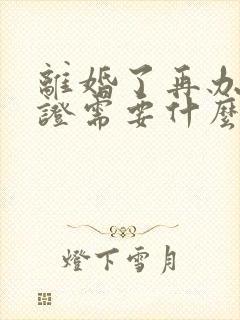 離婚了再办
證需要什麼
燈下雪月